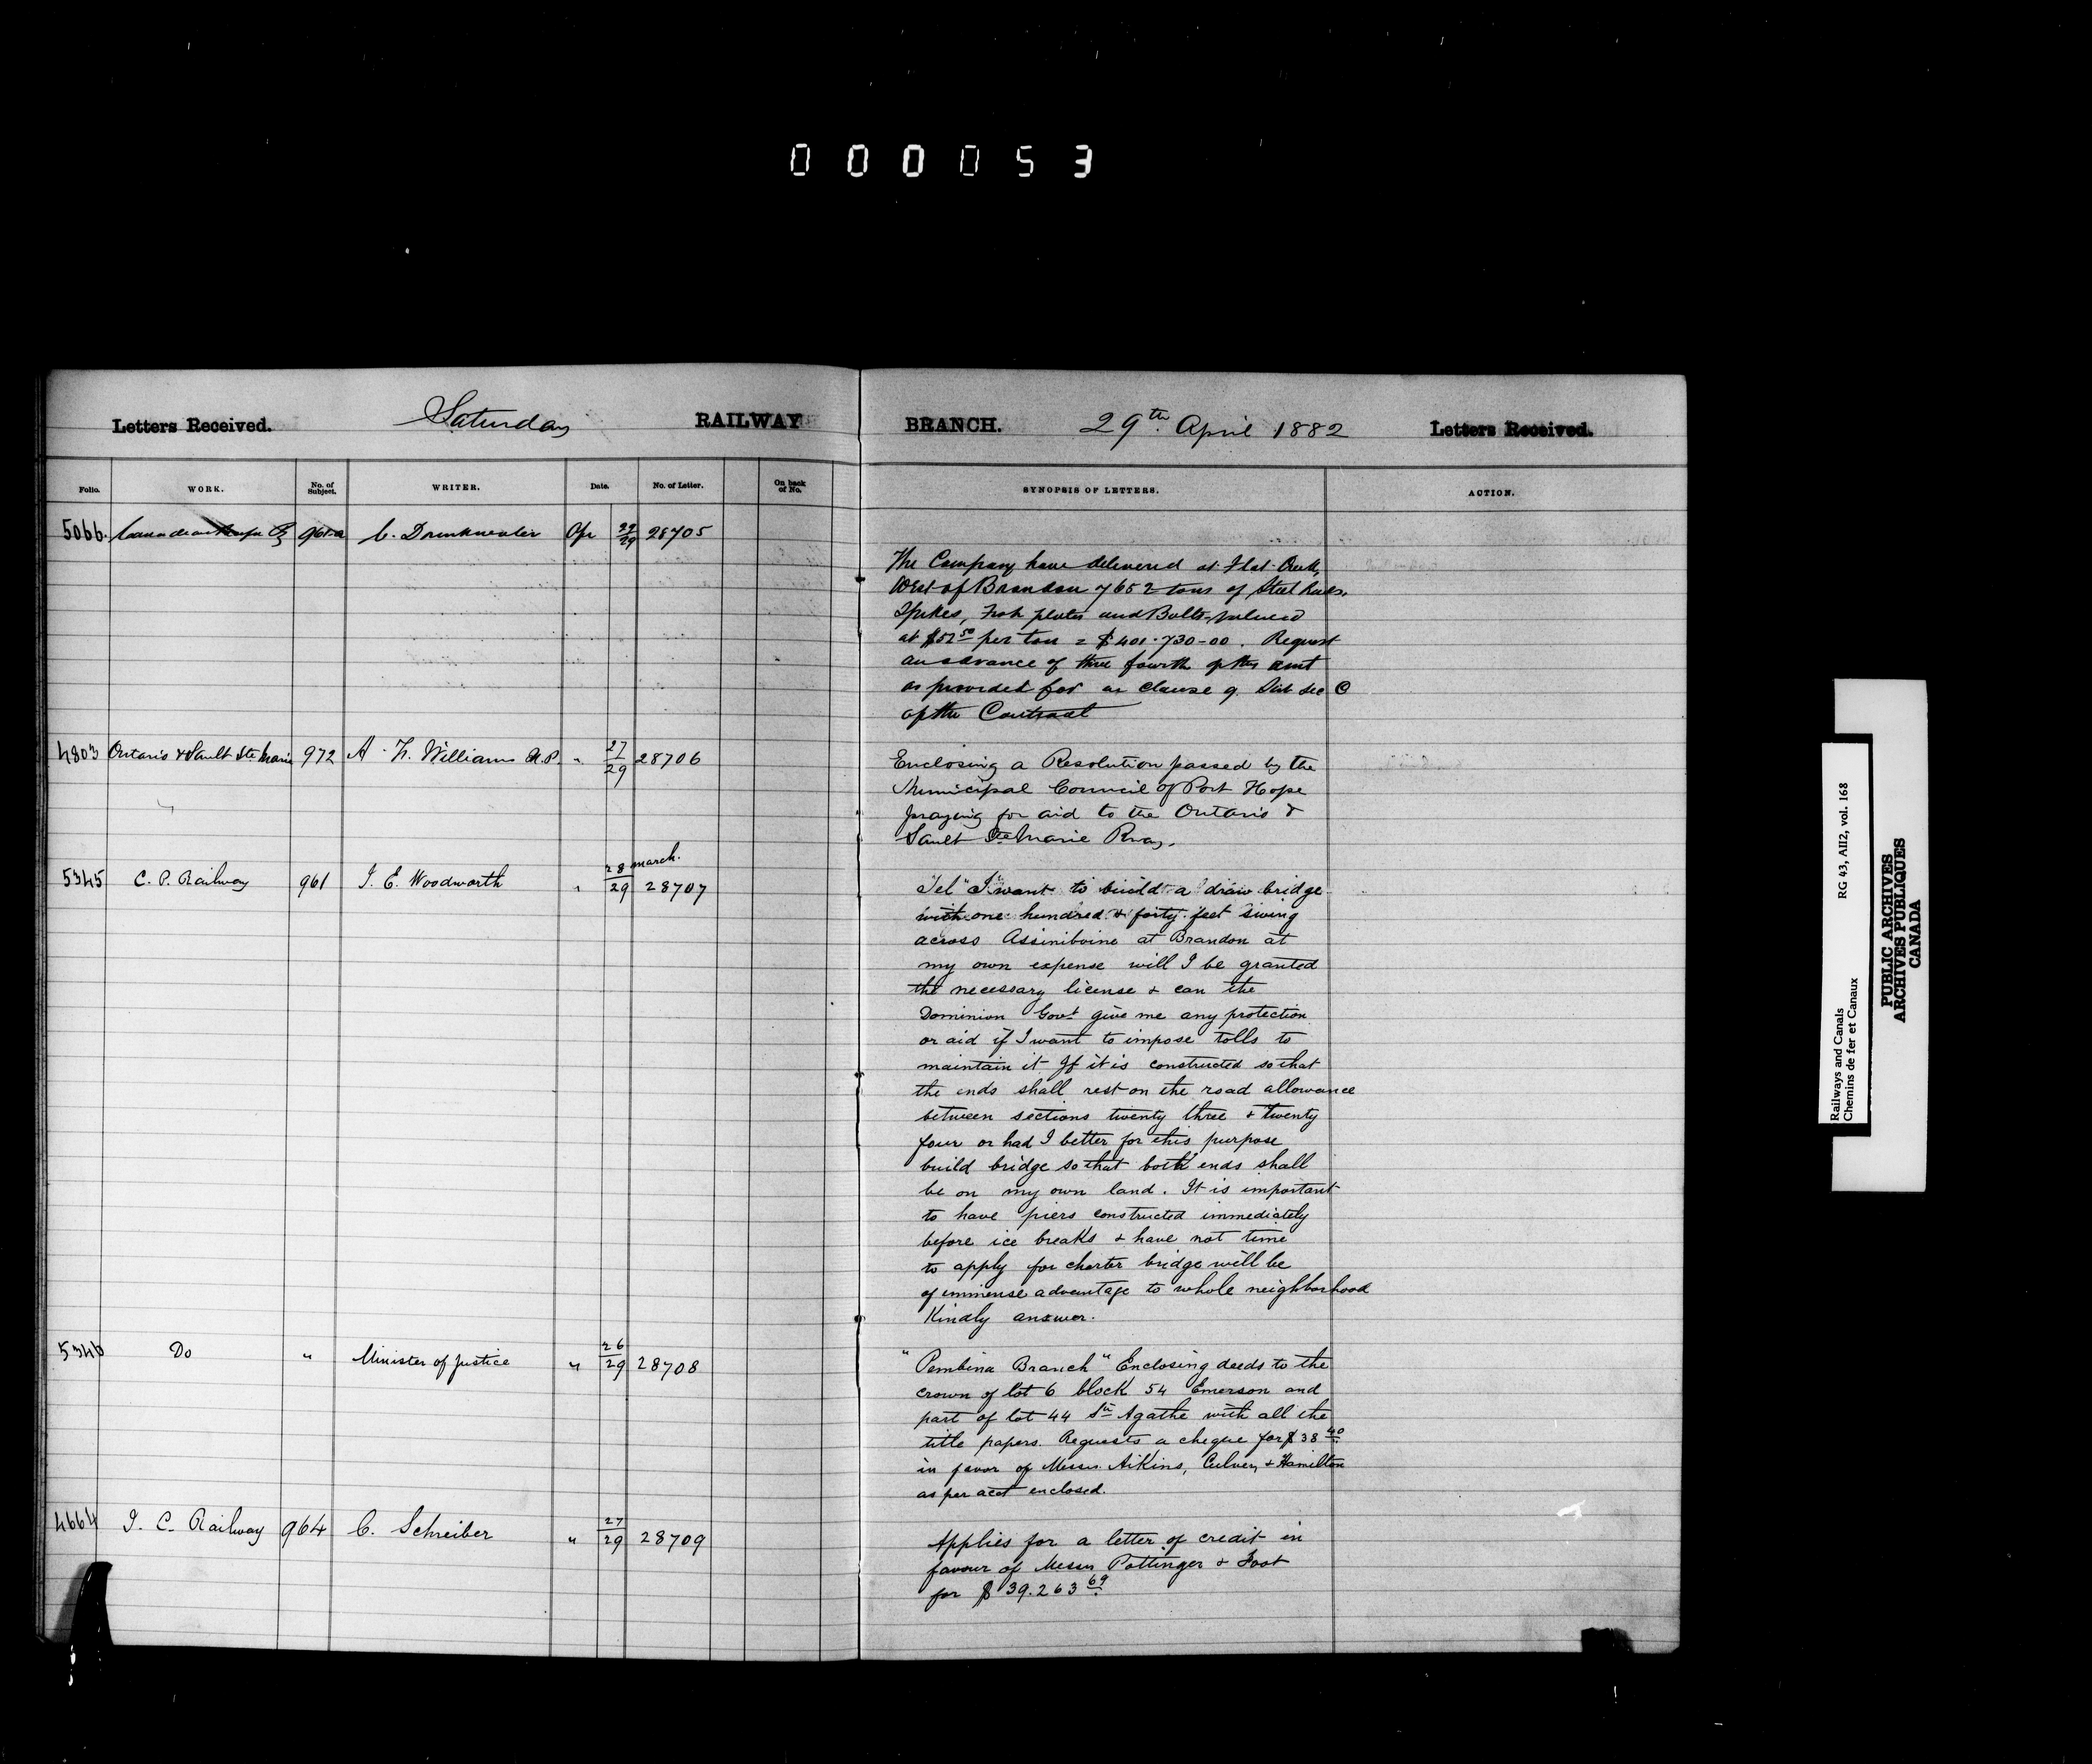 000053
Letters Received.
Saturday
RAILWAY
BRANCH.
29th April 1882
Letters Received.
Folio.
WORK.
No. of Subject.
WRITER.
Date.
No. of Letter.
On back of No.
SYNOPSIS OF LETTERS.
ACTION.
5066. Canadian C. Drinkwater Apr 29 28705
The Company have delivered at Flat Creek,
West of Brandon 7652 tons of Steel Rails,
Spikes, Fish plates and Bolts, valued
at $52 50 per ton = $401.730-00. Request
an advance of three fourth of this amt
as provided for in clause 9. Sub sec C
of the Contract
4803 Ontario & Sault Ste Marie 972 A. T. Williams M.P. " 27/29 28706
Enclosing a Resolution passed by the
Municipal Council of Port Hope
praying for aid to the Ontario &
Sault Ste Marie Rway.
5345 C. P. Railway 961 J. E. Woodworth " 28 march. /29 28707
Tel "I want to build a draw bridge
with one hundred & forty feet swing
across Assiniboine at Brandon at
my own expense will I be granted
the necessary license & can the
Dominion Govt give me any protection
or aid if I want to impose tolls to
maintain it If it is constructed so that
the ends shall rest on the road allowance
between sections twenty three & twenty
four or had I better for this purpose
build bridge so that both ends shall
be on my own land. It is important
to have piers constructed immediately
before ice breaks & have not time
to apply for charter bridge will be
of immense advantage to whole neighborhood
Kindly answer.
5346 Do " Minister of Justice " 26/29 28708
"Pembina Branch" Enclosing deeds to the
crown of lot 6 block 54 Emerson and
part of lot 44 Ste Agathe with all the
title papers. Requests a cheque for $38 40
in favor of Messrs. Aikins, Culver, & Hamilton
as per acct enclosed.
4664 I. C. Railway 964 C. Schreiber " 27/29 28709
Applies for a letter of credit in
favour of Messrs Pottinger & Foot
for $39.263 69
Railways and Canals
Chemins de fer et Canaux
RG 43, AII2, vol. 168
PUBLIC ARCHIVES
ARCHIVES PUBLIQUES
CANADA